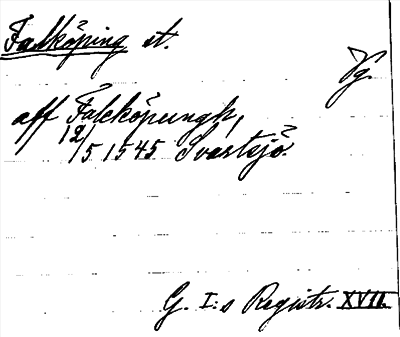 Falköping st.
Vg.
aff Faleköpungh,
12/5 1545 Svartsjö.
G. I:s Registr. XVII.